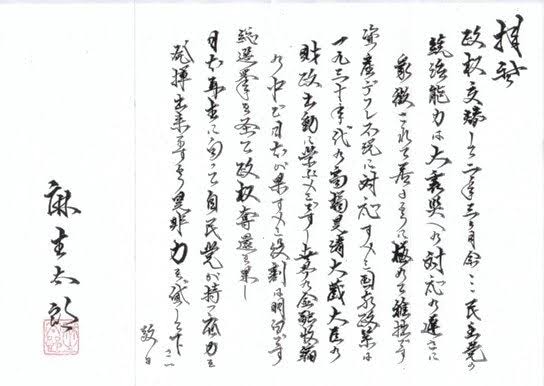 拝啓
政権交瑞して二年三ヶ月余 民主党の
統治能力は大震災への対応の遅さに
象徴されて居るように極めて稚拙です
資産デフレ不況に対応する国家政策は
一九三十年代の高橋是清大蔵大臣の
財政出動に 世界の金融収縮
の中で日本が果す 役割は明白です
総選挙を経て政権奪還を果し
日本再生に向って自民党が持てる底力を
発揮出来ますよう是非力を貸して下さい
敬具
麻生太郎